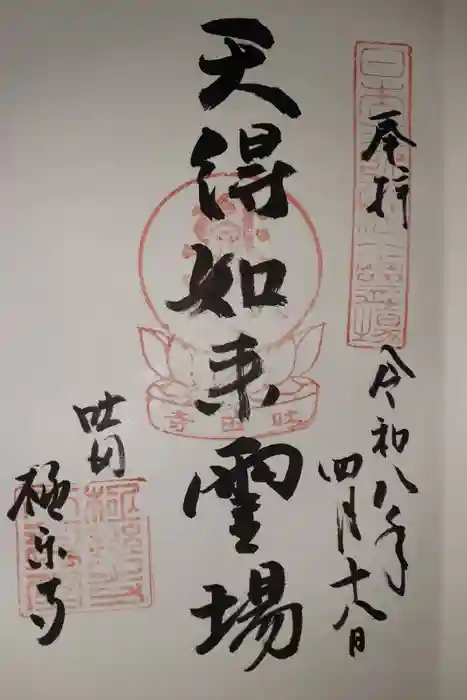 奉拝
令和八年
四月十八日
天得如来霊場
吐田寺
吐田
極楽寺